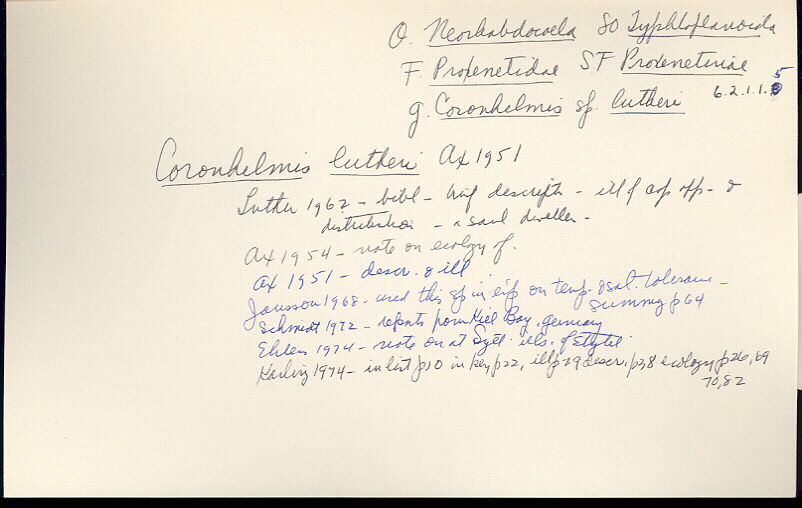 O. Neorhabdocoela SO Typhloplanoida
F. Proxenetidae SF Proxenetinae
g. Coronhelmis sp. lutheri 6.2.1.1.5
Coronhelmis lutheri Ax 1951
Luther 1962 - bibl - brief descriptn - ill of cop app - &
distribution - a sand dweller -
Ax 1954 - note on ecology of.
Ax 1951 - descr. & ill
Jansson 1968. used this sp in exp on temp. & sal. tolerance -
summry p 64
Schmidt 1972 - reports from Kiel Bay, Germany
Ehlers 1974 - note on at Sylt. ills. of stylet
Karling 1974 - in list p 10 in key p 22, ill p 29 descr. p 38 ecology p 26, 69
70, 82